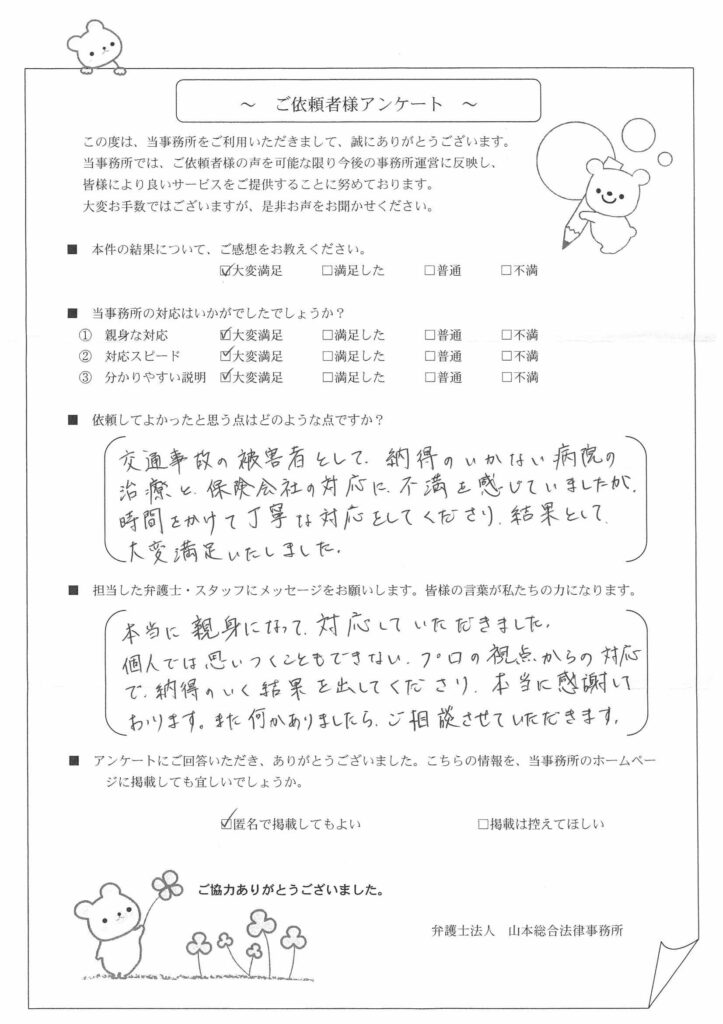 ～　ご依頼者様アンケート　～
この度は、当事務所をご利用いただきまして、誠にありがとうございます。
当事務所では、ご依頼者様の声を可能な限り今後の事務所運営に反映し、
皆様により良いサービスをご提供することに努めております。
大変お手数ではございますが、是非お声をお聞かせください。
■　本件の結果について、ご感想をお教えください。
☑大変満足　□満足した　□普通　□不満
■　当事務所の対応はいかがでしたでしょうか？
①　親身な対応　☑大変満足　□満足した　□普通　□不満
②　対応スピード　☑大変満足　□満足した　□普通　□不満
③　分かりやすい説明　☑大変満足　□満足した　□普通　□不満
■　依頼してよかったと思う点はどのような点ですか？
交通事故の被害者として、納得のいかない病院の
治療と、保険会社の対応に、不満を感じていましたが、
時間をかけて丁寧な対応をしてくださり、結果として、
大変満足いたしました。
■　担当した弁護士・スタッフにメッセージをお願いします。皆様の言葉が私たちの力になります。
本当に親身になって、対応していただきました。
個人では思いつくこともできない、プロの視点からの対応
で、納得のいく結果を出してくださり、本当に感謝して
おります。また何かありましたら、ご相談させていただきます。
■　アンケートにご回答いただき、ありがとうございました。こちらの情報を、当事務所のホームペー
ジに掲載しても宜しいでしょうか。
☑匿名で掲載してもよい　□掲載は控えてほしい
ご協力ありがとうございました。
弁護士法人　山本総合法律事務所